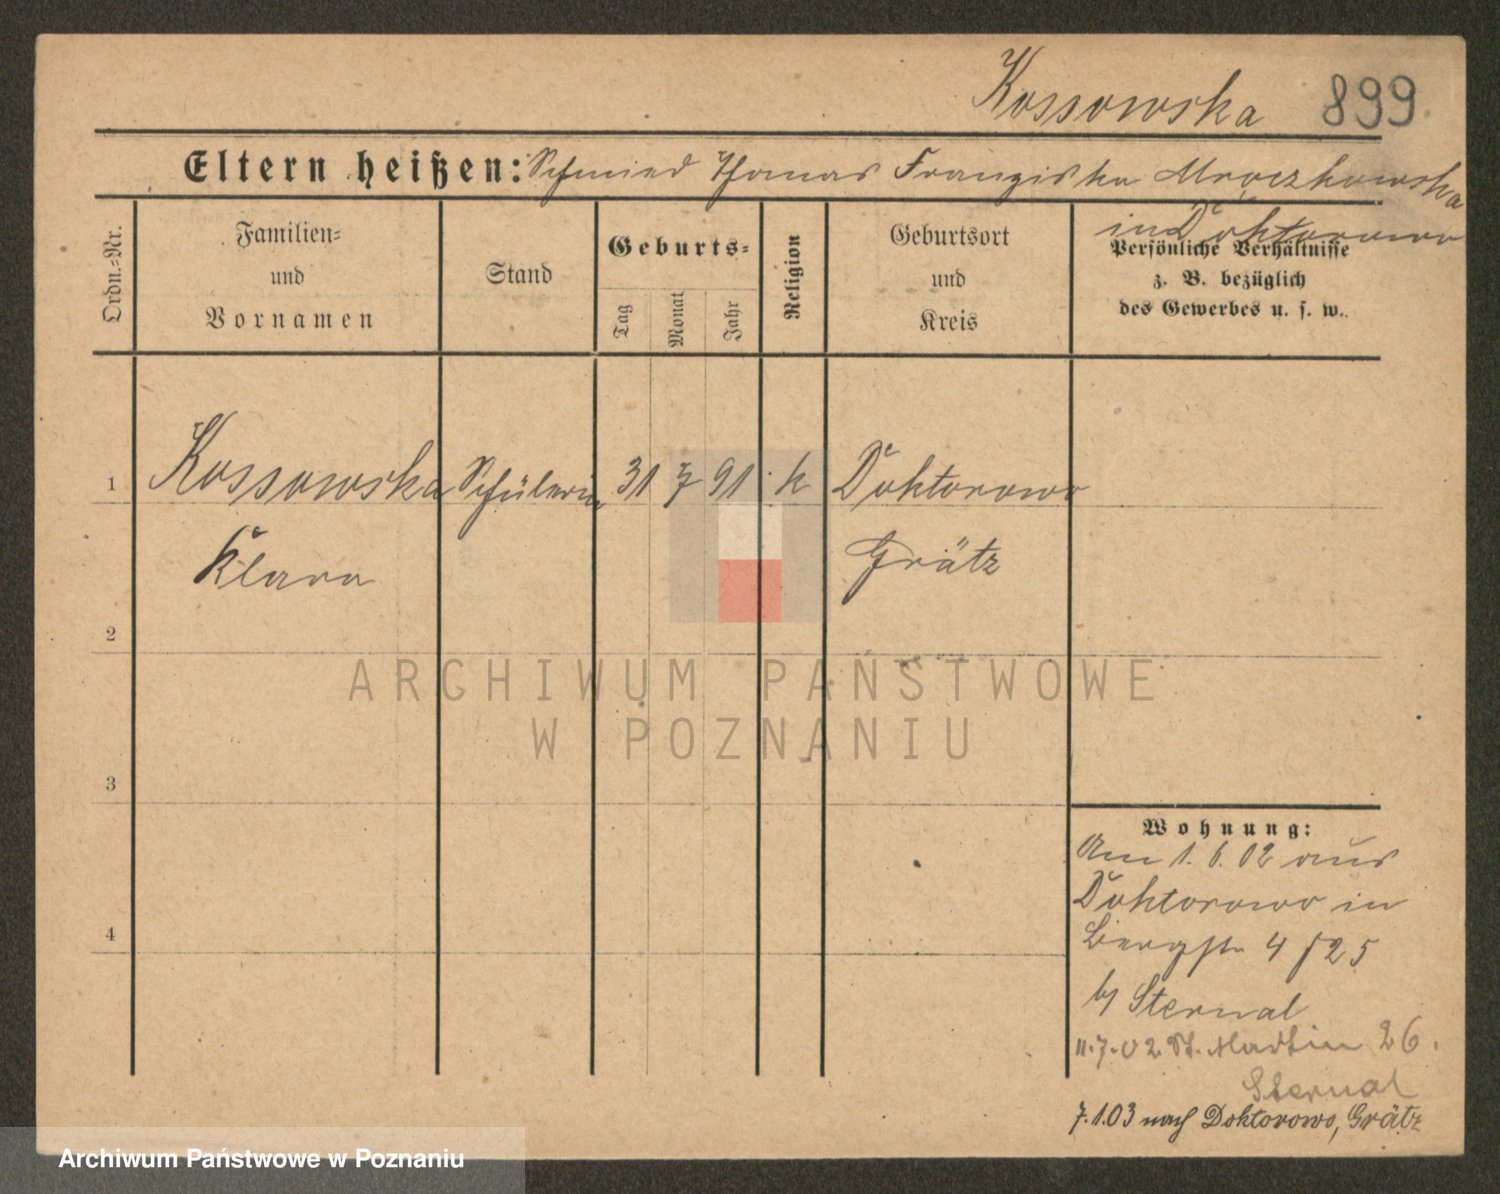 Kossowska 899
Eltern heißen: Schmied Thomas Franziska Mroczkowska
in Doktorowo
Ordn.-Nr.
Familien-
und
Vornamen
Stand
Geburts-
Tag
Monat
Jahr
Religion
Geburtsort
und
Kreis
Persönliche Verhältnisse
z. B. bezüglich
des Gewerbes u. s. w.
1 Kossowska Schülerin 31 7 91 k Doktorowo
Klara Grätz
2
3
4
Wohnung:
Am 1. 6. 02 aus
Doktorowo in
Bergstr 4 / 25
by Sternal
11.7.02 St. Martin 26.
Sternal
7.1.03 nach Doktorowo, Grätz
ARCHIWUM PAŃSTWOWE
W POZNANIU
Archiwum Państwowe w Poznaniu